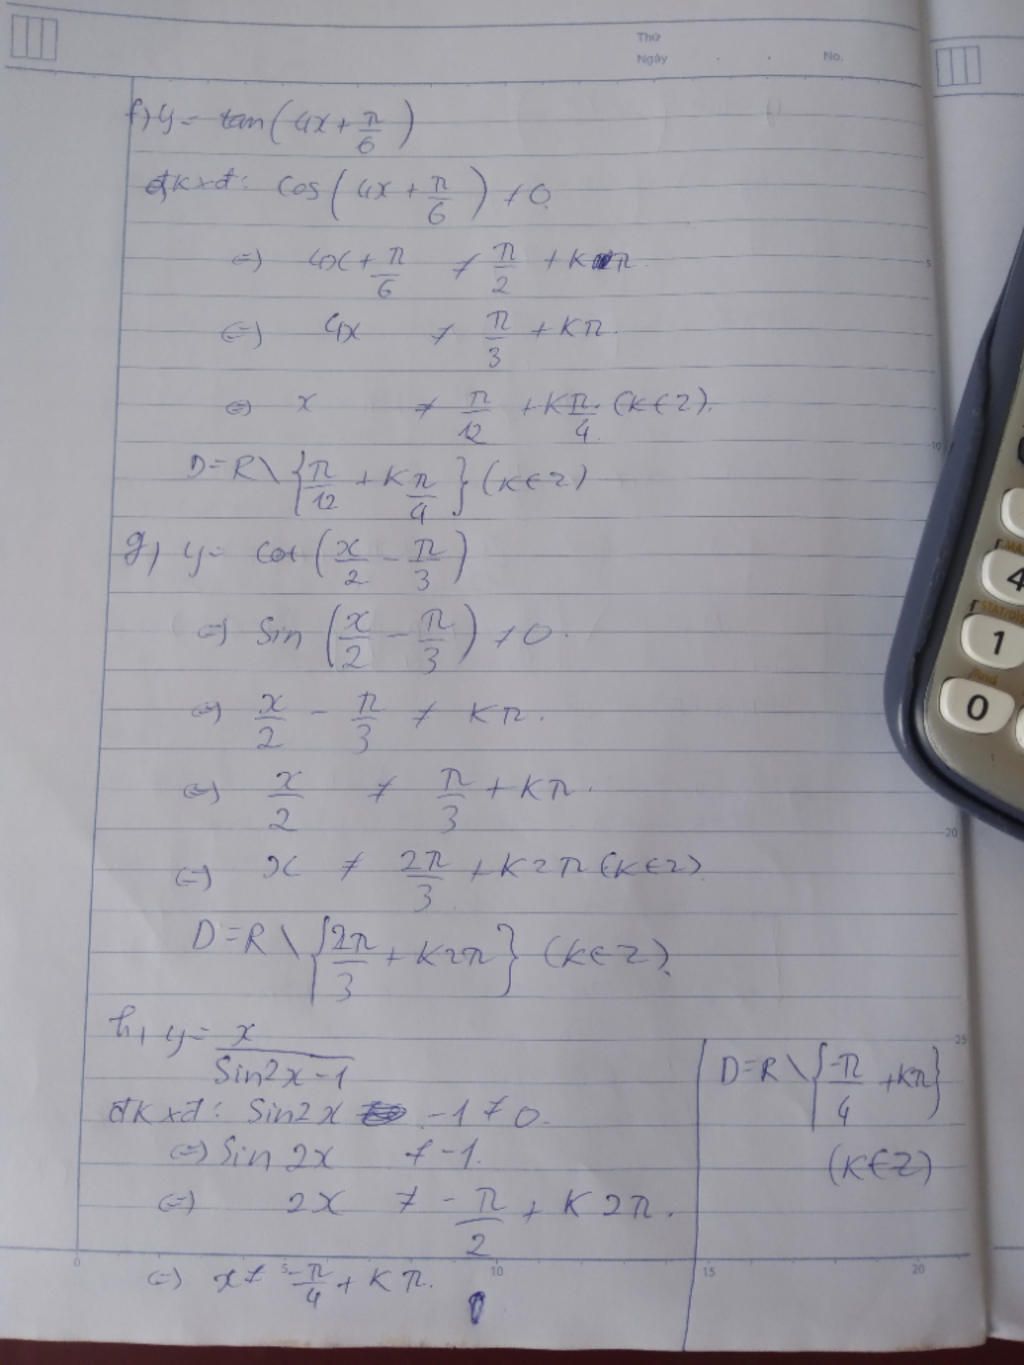 Thứ
Ngày . . No.
f) y = tan(4x + π/6)
đkxđ: cos(4x + π/6) ≠ 0.
⇔) 4x + π/6 ≠ π/2 + kπ
⇔) 4x ≠ π/3 + kπ.
⇔ x ≠ π/12 + kπ/4 (k∈Z).
D=R\{π/12 + kπ/4} (k∈Z)
g) y = cot(x/2 - π/3)
⇔) Sin(x/2 - π/3) ≠ 0.
⇔) x/2 - π/3 ≠ kπ.
⇔) x/2 ≠ π/3 + kπ.
⇔) x ≠ 2π/3 + k2π (k∈Z)
D=R\{2π/3 + k2π} (k∈Z).
h) y = x/(Sin2x-1)
đkxđ: Sin2x -1 ≠ 0.
⇔) Sin 2x ≠ -1.
⇔) 2x ≠ -π/2 + k2π.
⇔) x ≠ -π/4 + kπ.
D=R\{-π/4 + kπ}
(k∈Z)
5
10
20
25
0
5
10
15
20
4
1
0